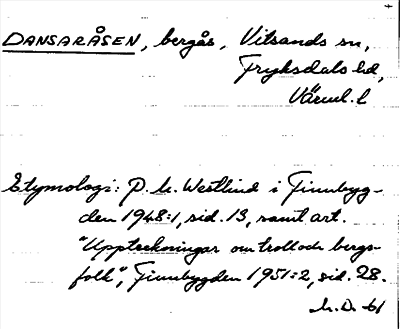 DANSARÅSEN, bergås, Vitsands sn,
Fryksdals hd,
Värml. l
Etymologi: P. h. Westlind i Finnbyg-
den 1948:1, sid. 13, samt art.
"Uppteckningar om troll och bergs-
folk", Finnbygden 1951:2, sid. 28.